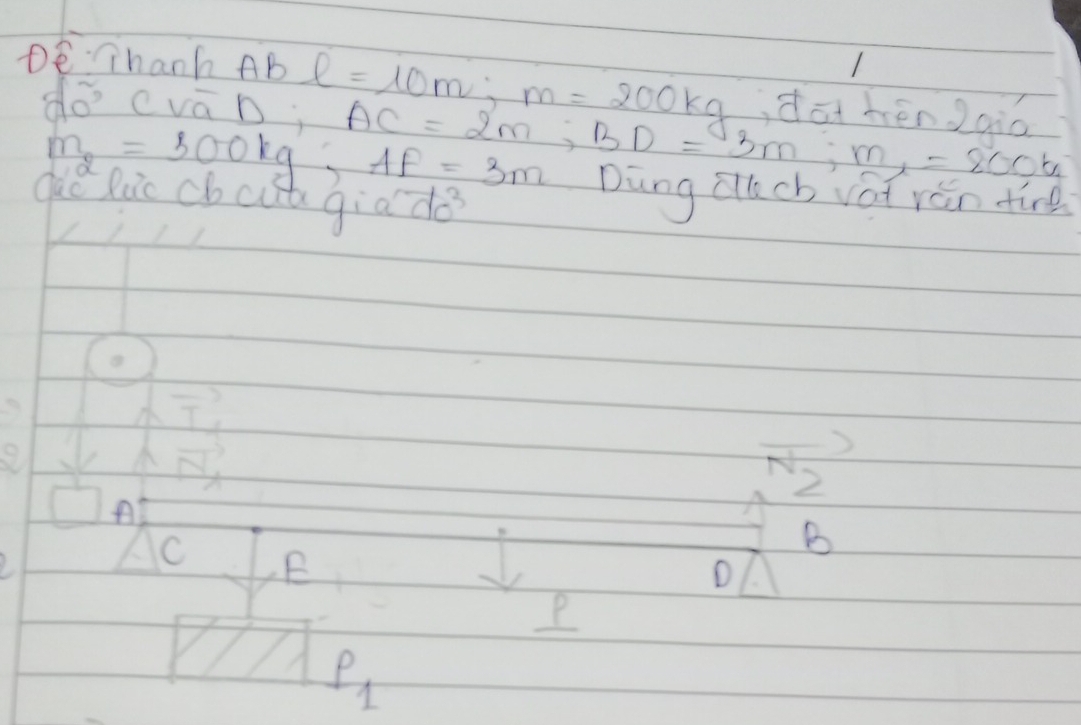 Đề: Thanh AB l = 10m; m = 200kg; đặt trên 2 giá
đỡ C và D; AC = 2m; BD = 3m; m₁ = 200kg
m₂ = 300kg; AE = 3m Dùng đkcb vật rắn tính
các lực cb của giá đỡ
T₁
N₁
N₂
A
B
C
E
D
P
P₁